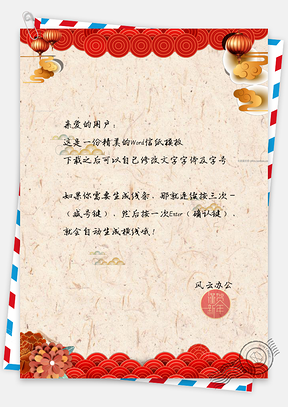 亲爱的用户：
这是一份精美的Word信纸模板
下载之后可以自己修改文字字体及字号
如果你需要生成线条，那就连续按三次
（减号键），然后按一次Enter（确认键）
就会自动生成横线哦！
风云办公